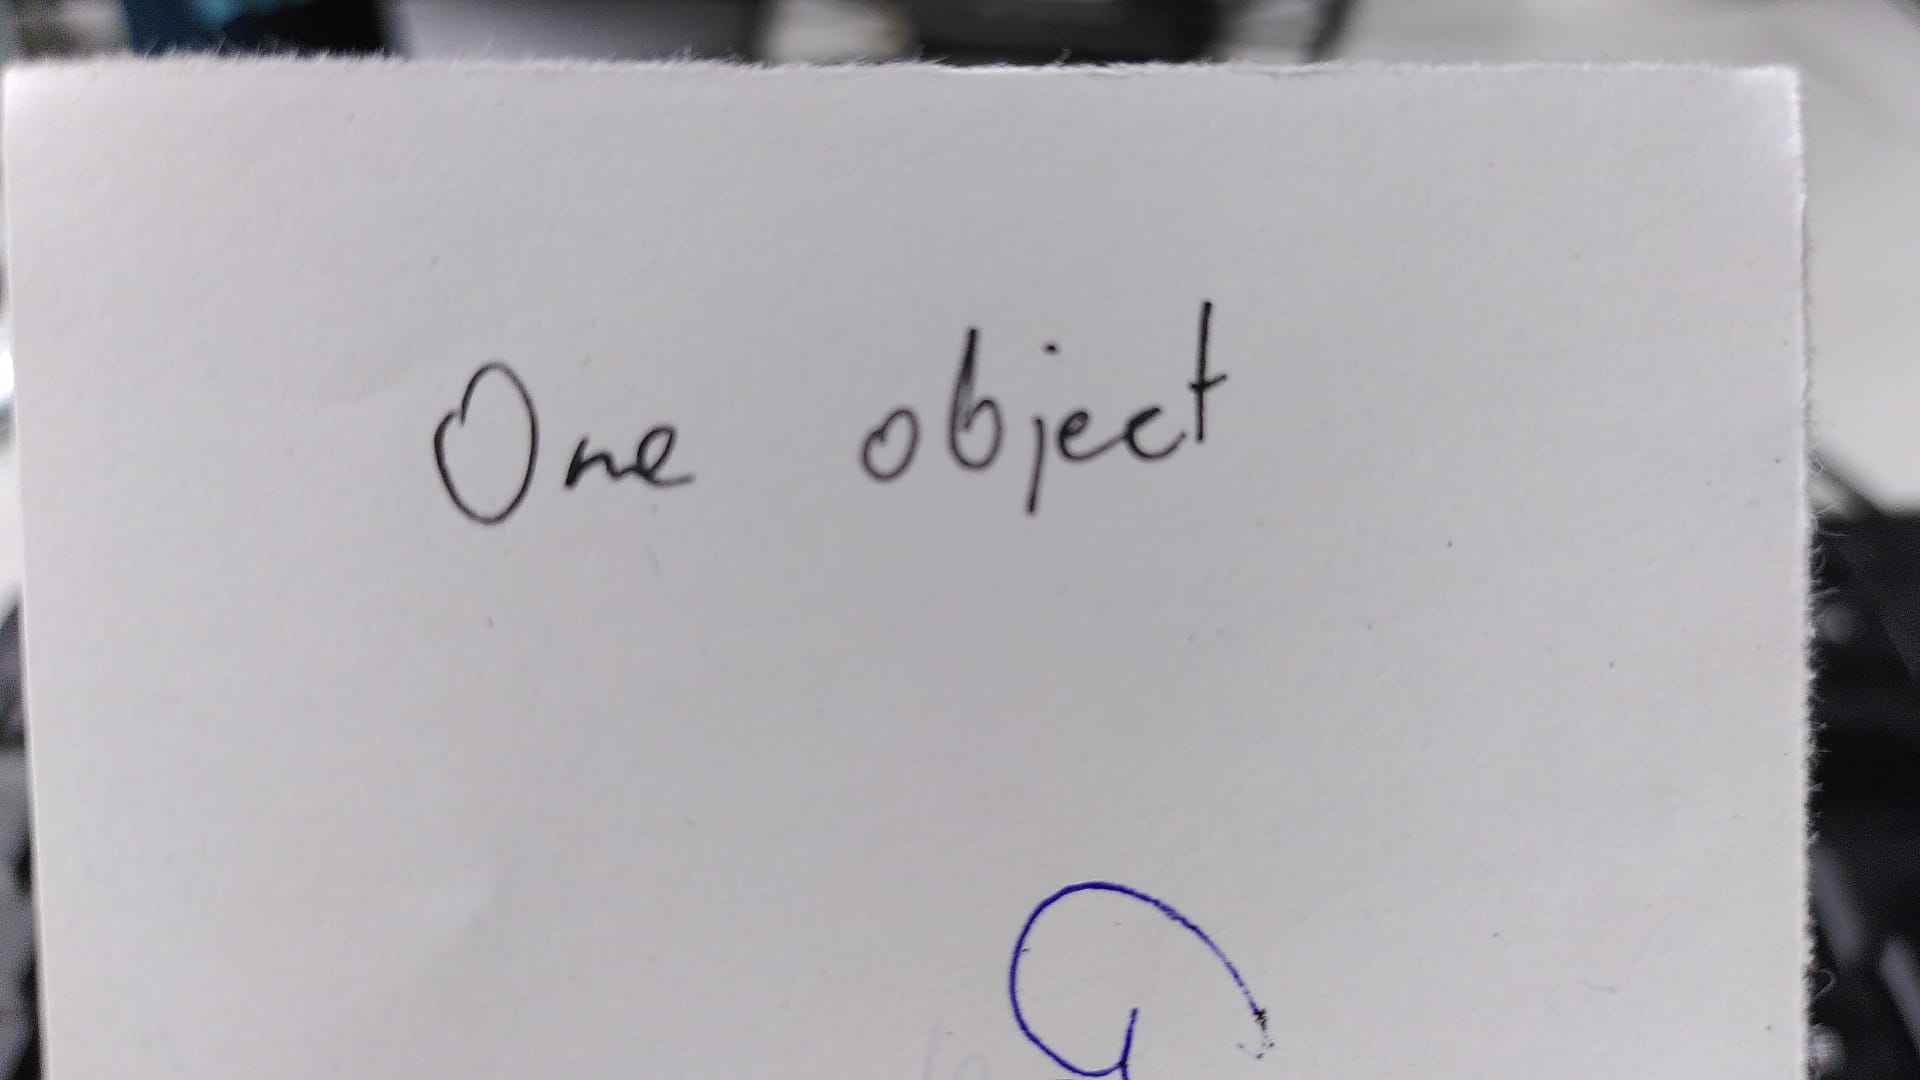 One object